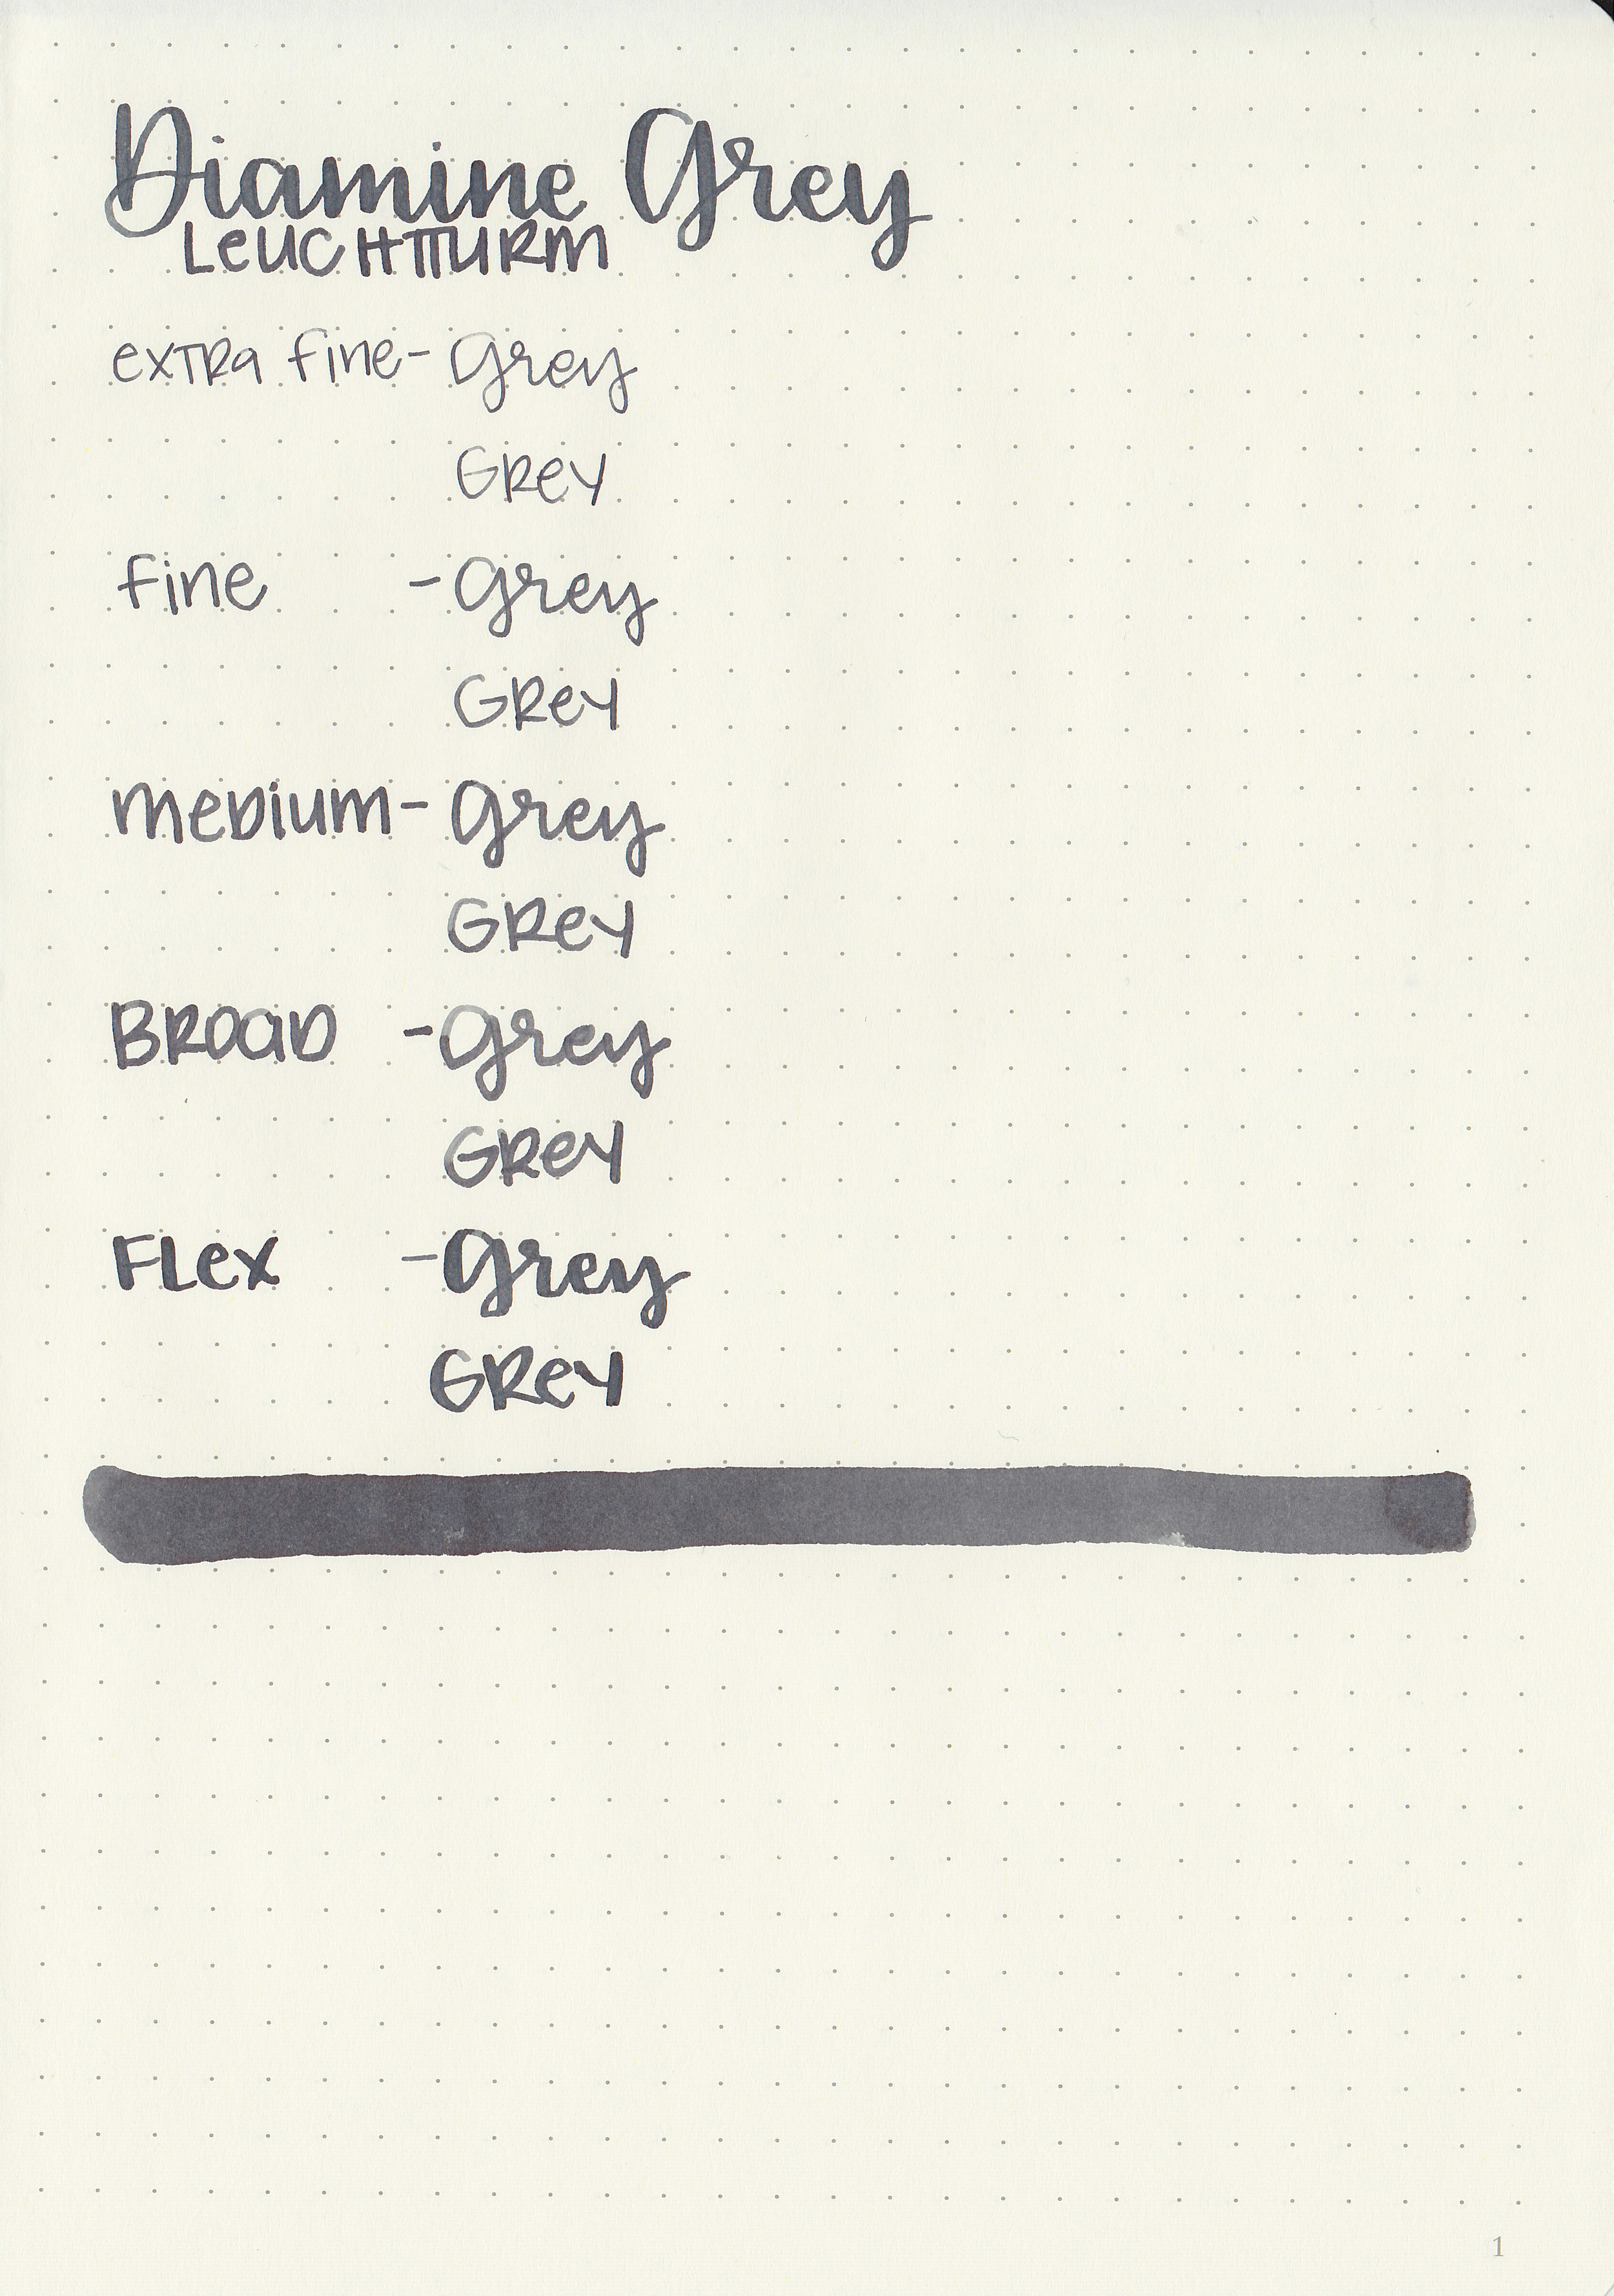 Diamine Grey
Leuchtturm
extra fine - Grey
Grey
fine - Grey
Grey
medium - Grey
Grey
Broad - Grey
Grey
Flex - Grey
Grey
1